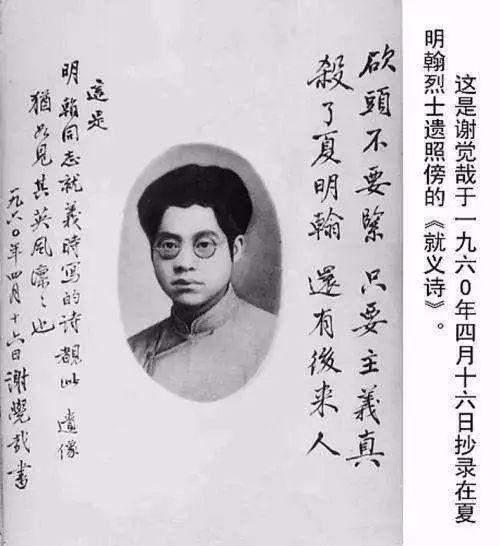 这是谢觉哉于一九六0年四月十六日抄录在夏
明翰烈士遗照傍的《就义诗》。
砍頭不要緊 只要主義真
殺了夏明翰 還有後来人
這是
明翰同志就義時寫的诗 覩此遺像
猶如見其英風凛々也
一九六〇年四月十六日謝覺哉書